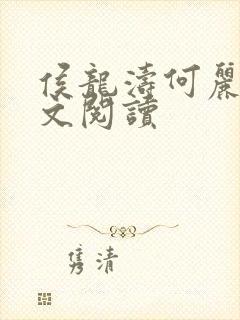 侯龍濤何麗
文閱讀
雋清